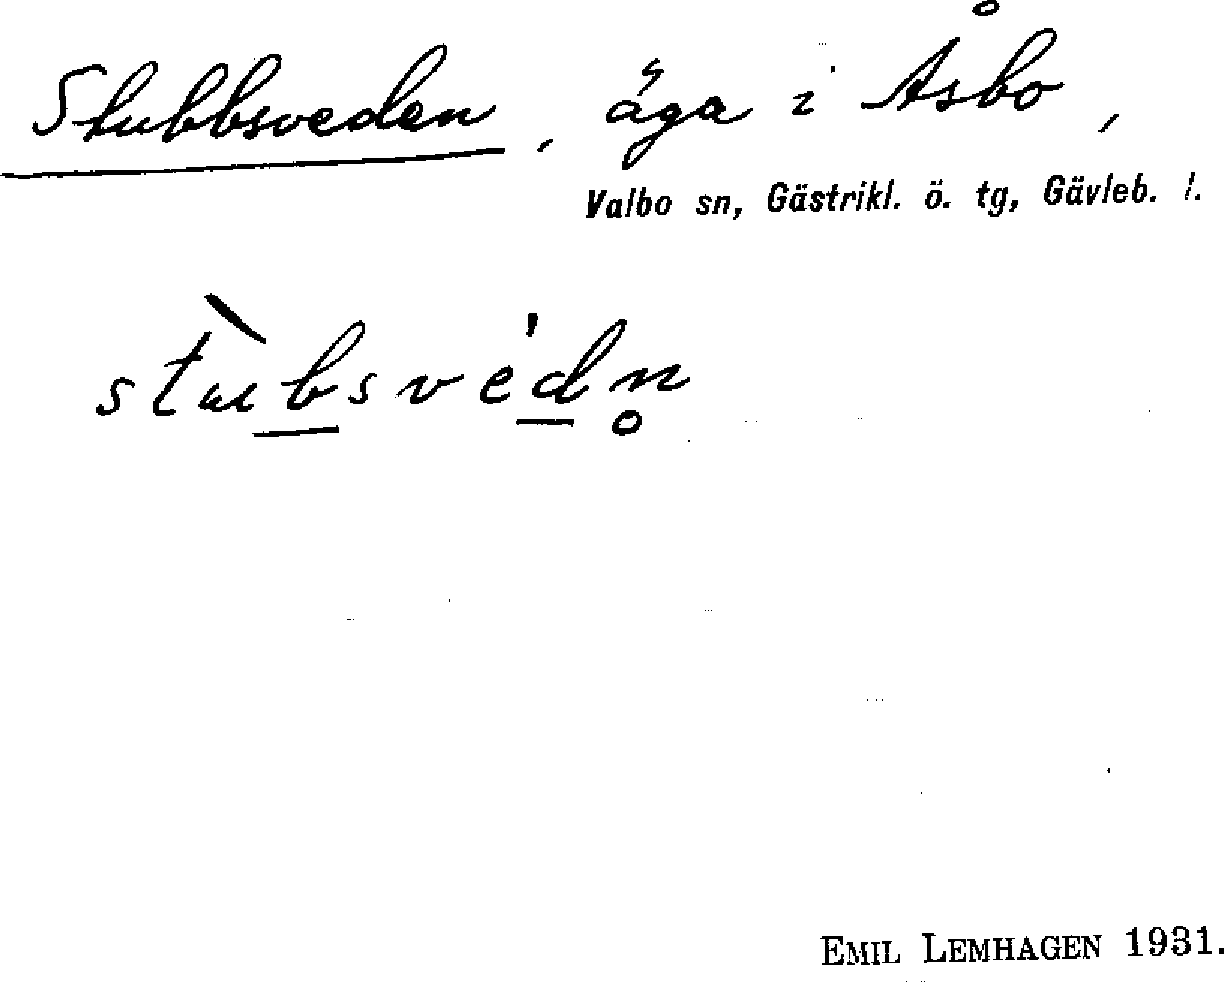 Stubbsveden, äga i Åsbo,
Valbo sn, Gästrikl. ö. tg, Gävleb. l.
stùb̲svéd̲n̥
EMIL LEMHAGEN 1931.